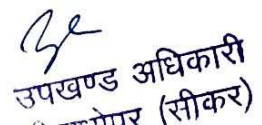 उपखण्ड अधिकारी
(सीकर)